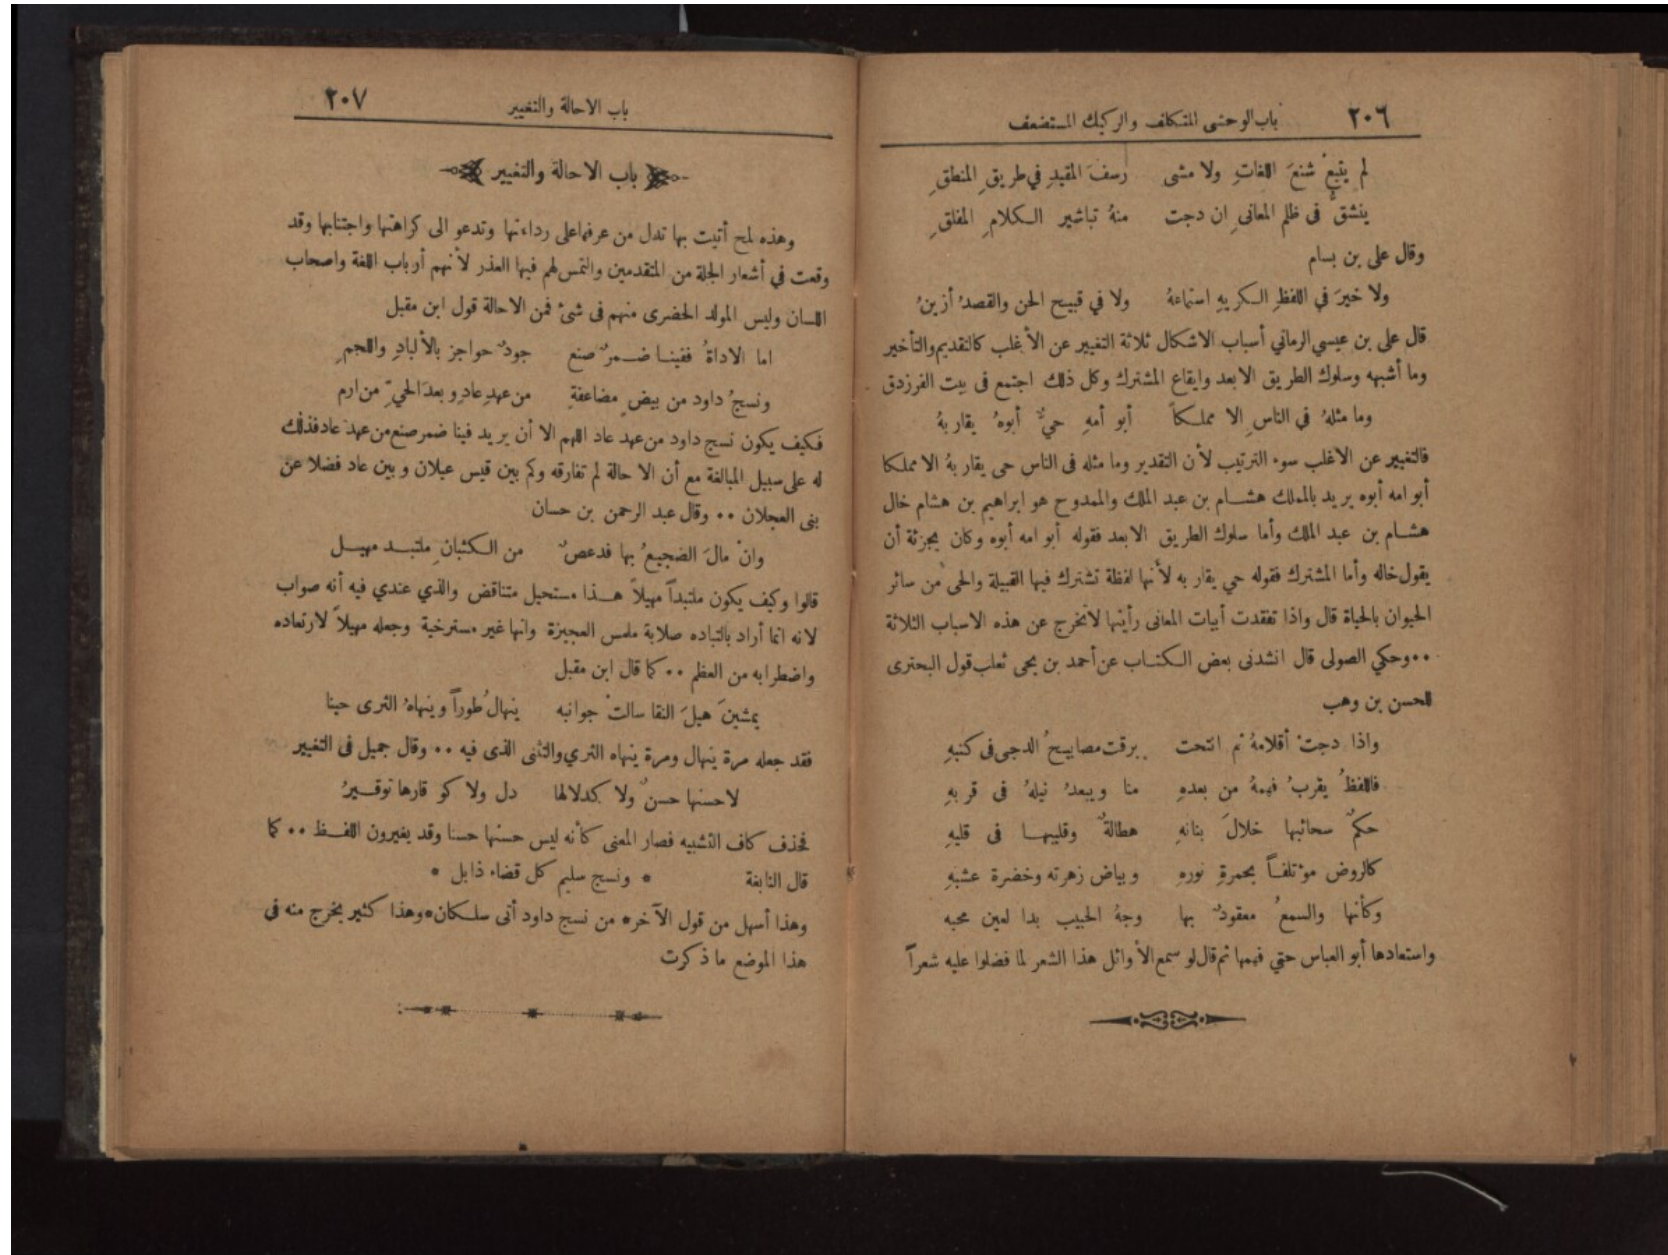 ٢٠٦ باب الوحشى المتكلف والركيك المستضعف
لم يتبعْ شنعَ اللغاتِ ولا مشى رسفَ المقيدِ في طريقِ المنطقِ
ينشقُّ فى ظلم المعانى ان دجت منهُ تباشير الكلامِ المفلقِ
وقال على بن بسام
ولا خيرَ في اللفظِ الكريهِ استماعهُ ولا في قبيح الحن والقصدُ أزينُ
قال على بن عيسي الرماني أسباب الاشكال ثلاثة التغيير عن الأغلب كالتقديم والتأخير
وما أشبهه وسلوك الطريق الابعد وايقاع المشترك وكل ذلك اجتمع فى بيت الفرزدق
وما مثلهُ في الناسِ الا مملكاً أبو أمهِ حيٌّ أبوهُ يقاربهُ
فالتغيير عن الاغلب سوء الترتيب لأن التقدير وما مثله فى الناس حى يقاربهُ الا مملكا
أبو امه أبوه يريد بالمملك هشام بن عبد الملك والممدوح هو ابراهيم بن هشام خال
هشام بن عبد الملك وأما سلوك الطريق الابعد فقوله أبو امه أبوه وكان يجزئة أن
يقول خاله وأما المشترك فقوله حي يقاربه لأنها لفظة تشترك فيها القبيلة والحى من سائر
الحيوان بالحياة قال واذا تفقدت أبيات المعانى رأيتها لاتخرج عن هذه الاسباب الثلاثة
٠٠ وحكي الصولى قال انشدنى بعض الكتاب عن أحمد بن يحى ثعلب قول البحترى
للحسن بن وهب
واذا دجتْ أقلامهُ ثم انتحت برقت مصابيحُ الدجى فى كتبهِ
فاللفظُ يقربُ فهمهُ من بعدهِ منا ويبعدُ نيلهُ فى قربهِ
حكمٌ سحائبها خلالَ بنانهِ هطالةٌ وقليبها فى قلبهِ
كالروض مؤتلفاً بحمرةِ نورهِ وبياض زهرته وخضرة عشبهِ
وكأنها والسمعُ معقودٌ بها وجهُ الحبيب بدا لعين محبه
واستعادها أبو العباس حتي فهمها ثم قال لو سمع الأوائل هذا الشعر لما فضلوا عليه شعراً
باب الاحالة والتغيير ٢٠٧
باب الاحالة والتغيير
وهذه لمح أتيت بها تدل من عرفها على رداءتها وتدعو الى كراهتها واجتنابها وقد
وقعت في أشعار الجلة من المتقدمين والتمس لهم فيها العذر لأنهم أرباب اللغة واصحاب
اللسان وليس المولد الحضرى منهم فى شئ فمن الاحالة قول ابن مقبل
اما الاداةُ ففينا ضمرٌ صنع جودٌ حواجز بالألبادِ واللجمِ
ونسجُ داود من بيضٍ مضاعفةٍ من عهدِ عادٍ وبعدَ الحيِّ من ارم
فكيف يكون نسج داود من عهد عاد اللهم الا أن يريد فينا ضمر صنع من عهد عاد فذلك
له على سبيل المبالغة مع أن الاحالة لم تفارقه وكم بين قيس عيلان وبين عاد فضلا عن
بنى العجلان ٠٠ وقال عبد الرحمن بن حسان
وانْ مالَ الضجيعُ بها فدعصٌ من الكثبانِ ملتبد مهيل
قالوا وكيف يكون ملتبداً مهيلاً هذا مستحيل متناقض والذي عندي فيه أنه صواب
لانه انما أراد بالتباده صلابة ملمس العجيزة وانها غير مسترخية وجعله مهيلاً لارتعاده
واضطرابه من العظم ٠٠ كما قال ابن مقبل
يمشينَ هيلَ النقا سالتْ جوانبه ينهالُ طوراً وينهاهُ الثرى حينا
فقد جعله مرة ينهال ومرة ينهاه الثري والتنى الذى فيه ٠٠ وقال جميل فى التغيير
لاحسنها حسنٌ ولا كدلالها دل ولا كوقارها توقيرُ
فحذف كاف التشبيه فصار المعنى كأنه ليس حسنها حسنا وقد يغيرون اللفظ ٠٠ كما
قال النابغة * ونسج سليم كل قضاء ذابل *
وهذا أسهل من قول الآخر * من نسج داود أنى سلكان * وهذا كثير يخرج منه في
هذا الموضع ما ذكرت